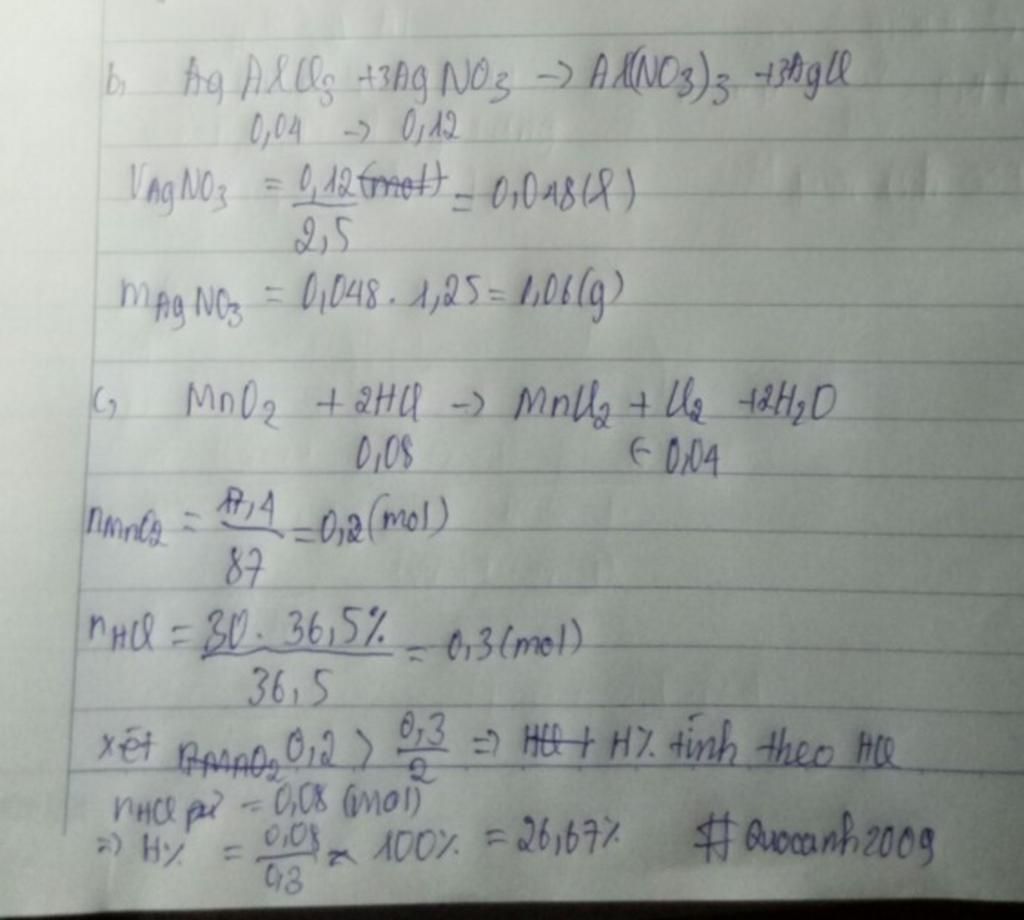 b, Ag AlCl3 +3AgNO3 -> Al(NO3)3 +3AgCl
0,04 -> 0,12
VAgNO3 = 0,12(mol) / 2,5 = 0,048(l)
mAgNO3 = 0,048. 1,25 = 1,06(g)
c, MnO2 + 2HCl -> MnCl2 + Cl2 +2H2O
0,08 <- 0,04
nMnO2 = 17,4 / 87 = 0,2(mol)
nHCl = 30. 36,5% / 36,5 = 0,3(mol)
xét nMnO2 0,2 > 0,3 / 2 => HCl + H% tính theo HCl
nHCl pứ = 0,08 (mol)
=> H% = 0,08 / 0,3 x 100% = 26,67% #Quocanh2009